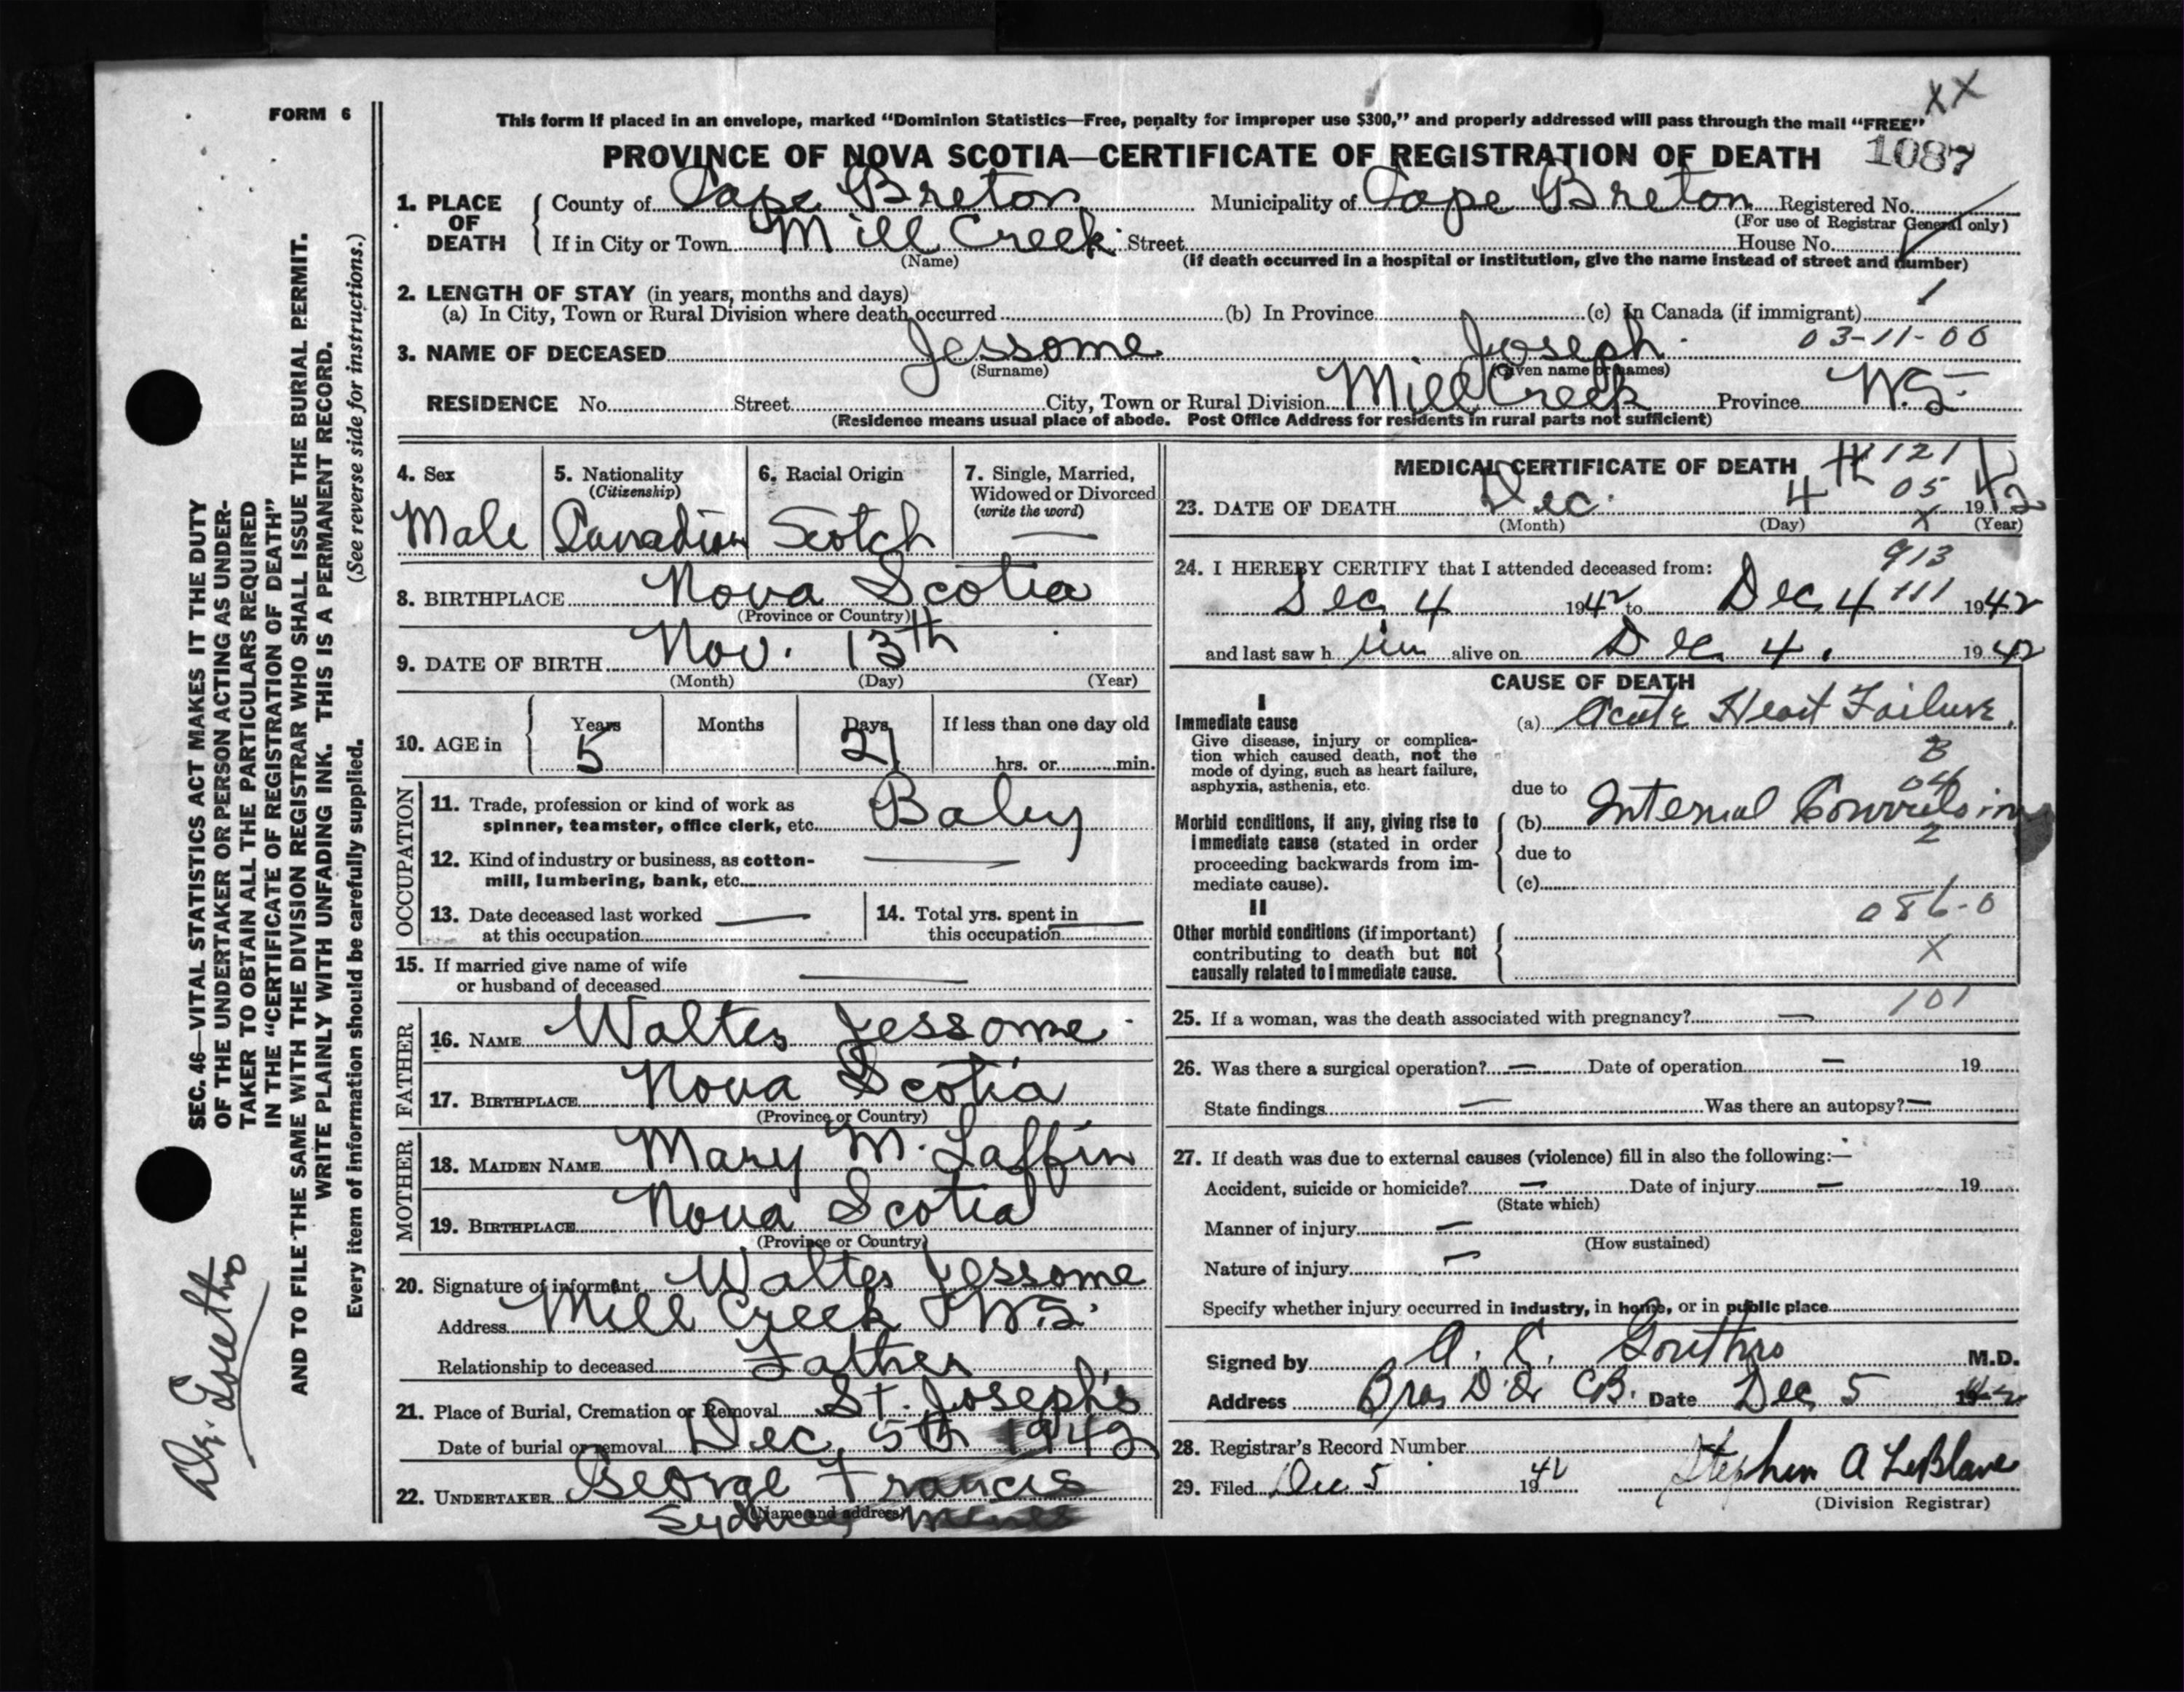 FORM 6
SEC. 46—VITAL STATISTICS ACT MAKES IT THE DUTY
OF THE UNDERTAKER OR PERSON ACTING AS UNDER-
TAKER TO OBTAIN ALL THE PARTICULARS REQUIRED
IN THE "CERTIFICATE OF REGISTRATION OF DEATH"
AND TO FILE THE SAME WITH THE DIVISION REGISTRAR WHO SHALL ISSUE THE BURIAL PERMIT.
WRITE PLAINLY WITH UNFADING INK. THIS IS A PERMANENT RECORD.
Every item of information should be carefully supplied. (See reverse side for instructions.)
Dr. Gouthro
XX
This form if placed in an envelope, marked "Dominion Statistics—Free, penalty for improper use $300," and properly addressed will pass through the mail "FREE"
PROVINCE OF NOVA SCOTIA—CERTIFICATE OF REGISTRATION OF DEATH 1087
1. PLACE OF DEATH County of Cape Breton Municipality of Cape Breton Registered No.
(For use of Registrar General only)
If in City or Town Mill Creek Street House No.
(Name) (If death occurred in a hospital or institution, give the name instead of street and number)
2. LENGTH OF STAY (in years, months and days)
(a) In City, Town or Rural Division where death occurred (b) In Province (c) In Canada (if immigrant) 1
3. NAME OF DECEASED Jessome Joseph 03-11-06
(Surname) (Given name or names)
RESIDENCE No. Street City, Town or Rural Division Mill Creek Province N.S.
(Residence means usual place of abode. Post Office Address for residents in rural parts not sufficient)
4. Sex Male
5. Nationality (Citizenship) Canadian
6. Racial Origin Scotch
7. Single, Married, Widowed or Divorced (write the word) —
8. BIRTHPLACE Nova Scotia
(Province or Country)
9. DATE OF BIRTH Nov. 13th
(Month) (Day) (Year)
10. AGE in Years 5 Months Days 21 If less than one day old
hrs. or min.
OCCUPATION
11. Trade, profession or kind of work as
spinner, teamster, office clerk, etc. Baby
12. Kind of industry or business, as cotton-
mill, lumbering, bank, etc. —
13. Date deceased last worked
at this occupation —
14. Total yrs. spent in
this occupation —
15. If married give name of wife
or husband of deceased —
FATHER
16. NAME Walter Jessome
17. BIRTHPLACE Nova Scotia
(Province or Country)
MOTHER
18. MAIDEN NAME Mary M. Laffin
19. BIRTHPLACE Nova Scotia
(Province or Country)
20. Signature of informant Walter Jessome
Address Mill Creek N.S.
Relationship to deceased Father
21. Place of Burial, Cremation or Removal St. Joseph's
Date of burial or removal Dec. 5th 1942
22. UNDERTAKER George Francis
(Name and address)
Sydney Mines
MEDICAL CERTIFICATE OF DEATH 121
05
23. DATE OF DEATH Dec. 4th 1942
(Month) (Day) X (Year)
913
24. I HEREBY CERTIFY that I attended deceased from:
Dec 4 1942 to Dec 4 111 1942
and last saw him alive on Dec 4. 1942
CAUSE OF DEATH
I
Immediate cause (a) Acute Heart Failure.
Give disease, injury or complica-
tion which caused death, not the
mode of dying, such as heart failure,
asphyxia, asthenia, etc.
B
04
due to
Morbid conditions, if any, giving rise to
immediate cause (stated in order
proceeding backwards from im-
mediate cause).
(b) Internal Convulsion
2
due to
(c)
086-0
II
Other morbid conditions (if important)
contributing to death but not
causally related to immediate cause.
X
101
25. If a woman, was the death associated with pregnancy? —
26. Was there a surgical operation? — Date of operation — 19
State findings — Was there an autopsy? —
27. If death was due to external causes (violence) fill in also the following:—
Accident, suicide or homicide? — Date of injury — 19
(State which)
Manner of injury —
(How sustained)
Nature of injury —
Specify whether injury occurred in industry, in home, or in public place
Signed by A. C. Gouthro M.D.
Address Bras D'Or C.B. Date Dec 5 1942
28. Registrar's Record Number
29. Filed Dec 5 1942 Stephen A LeBlanc
(Division Registrar)